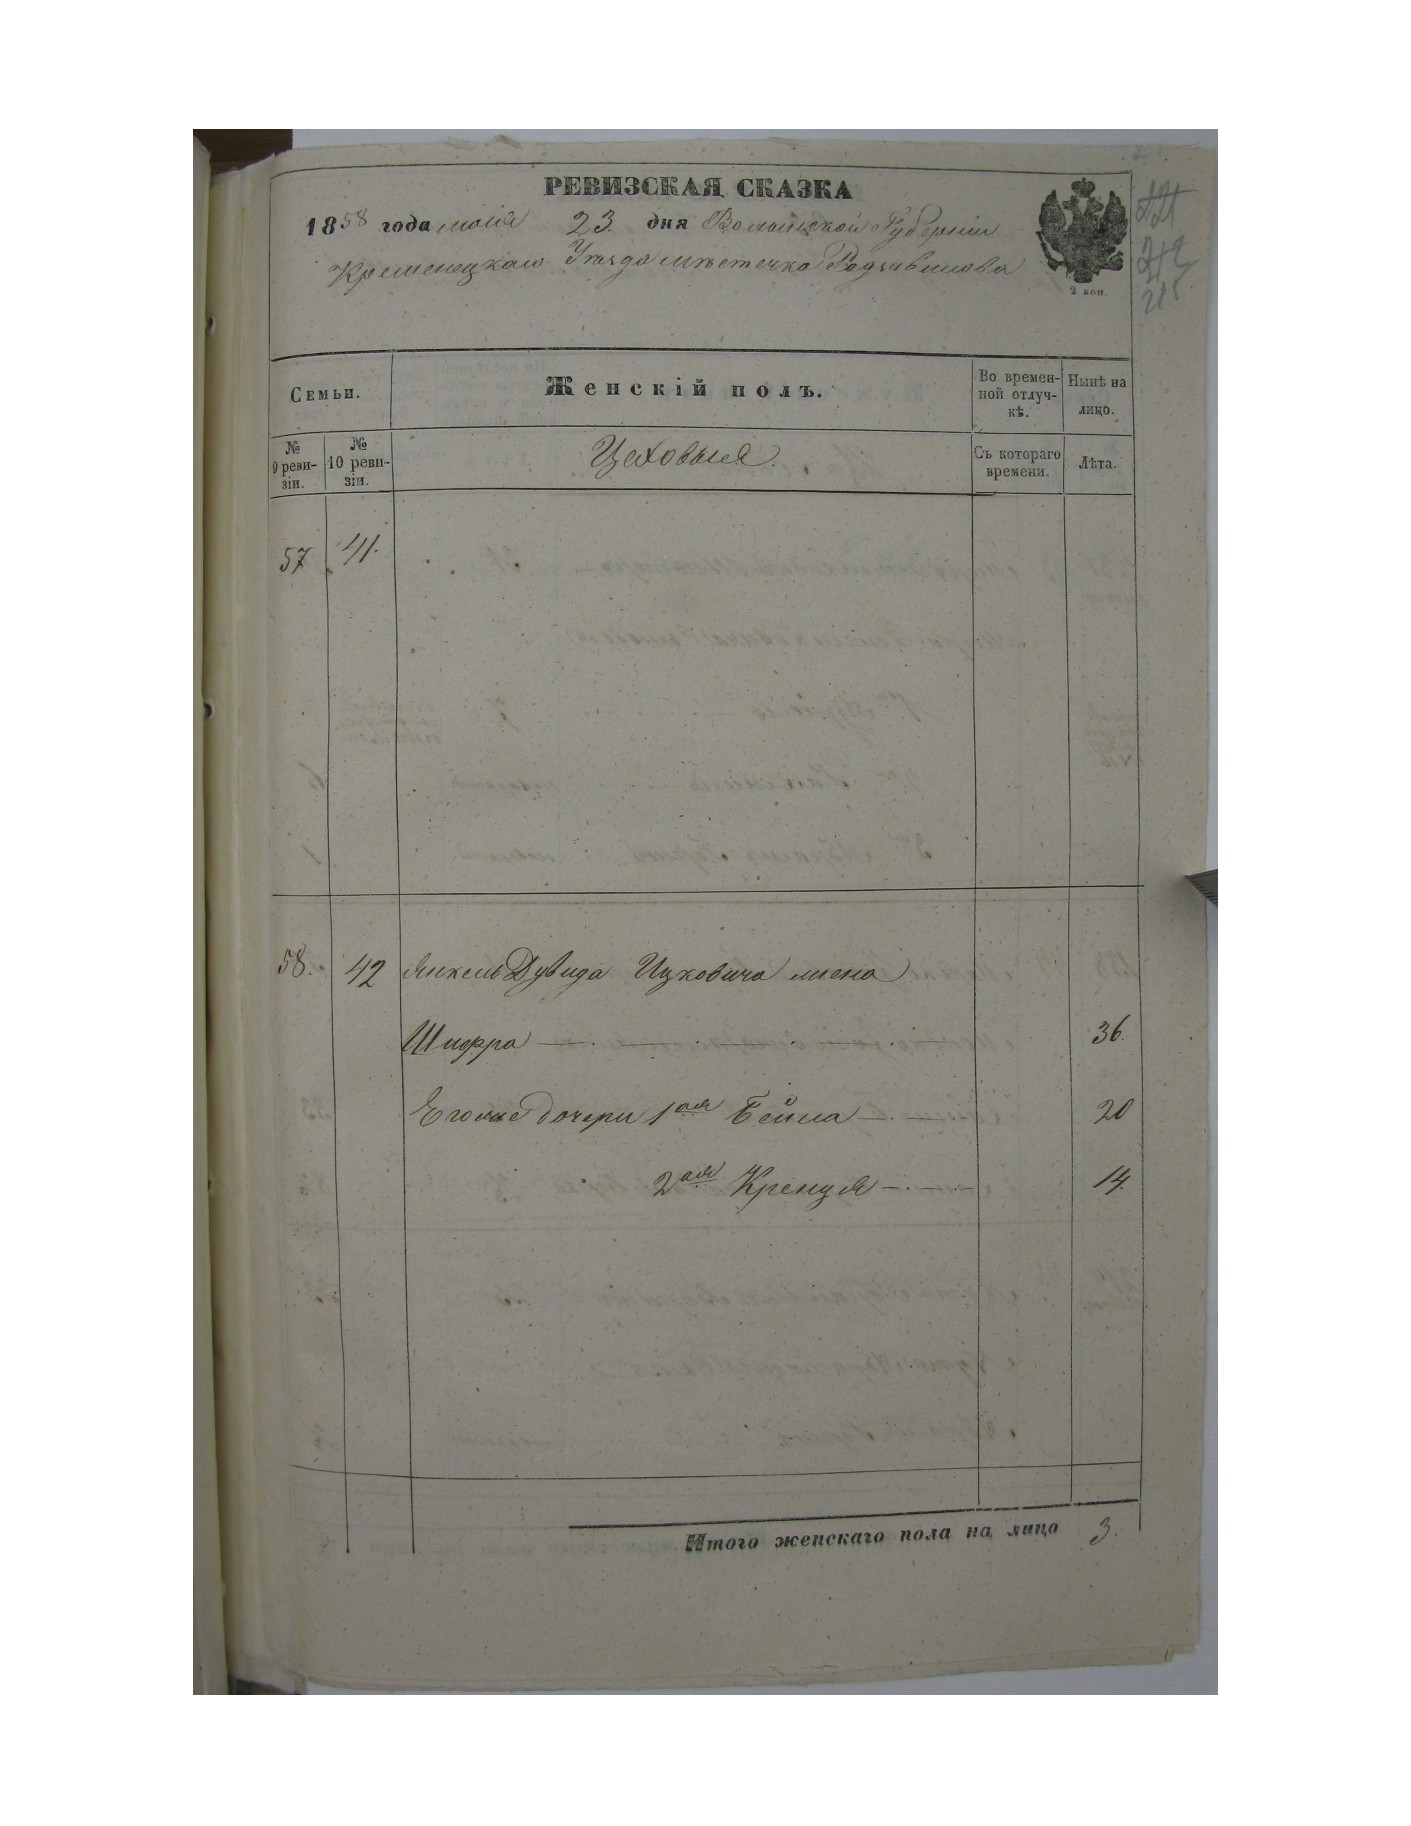 РЕВИЗСКАЯ СКАЗКА
1858 года маія 23. дня Волынской Губерніи
Кременецкаго Уѣзда мѣстечка Радзивилова
2 коп.
215
Семьи.
Женскій полъ.
Во времен-
ной отлуч-
кѣ.
Нынѣ на
лицо.
№
9 реви-
зіи.
№
10 реви-
зіи.
Цеховыя.
Съ котораго
времени.
Лѣта.
57 41.
58. 42 Янкель Дувида Ицковича жена
Шифра 36.
Его же дочери 1ая Бейла 20
2ая Кренця 14.
Итого женскаго пола на лицо 3.